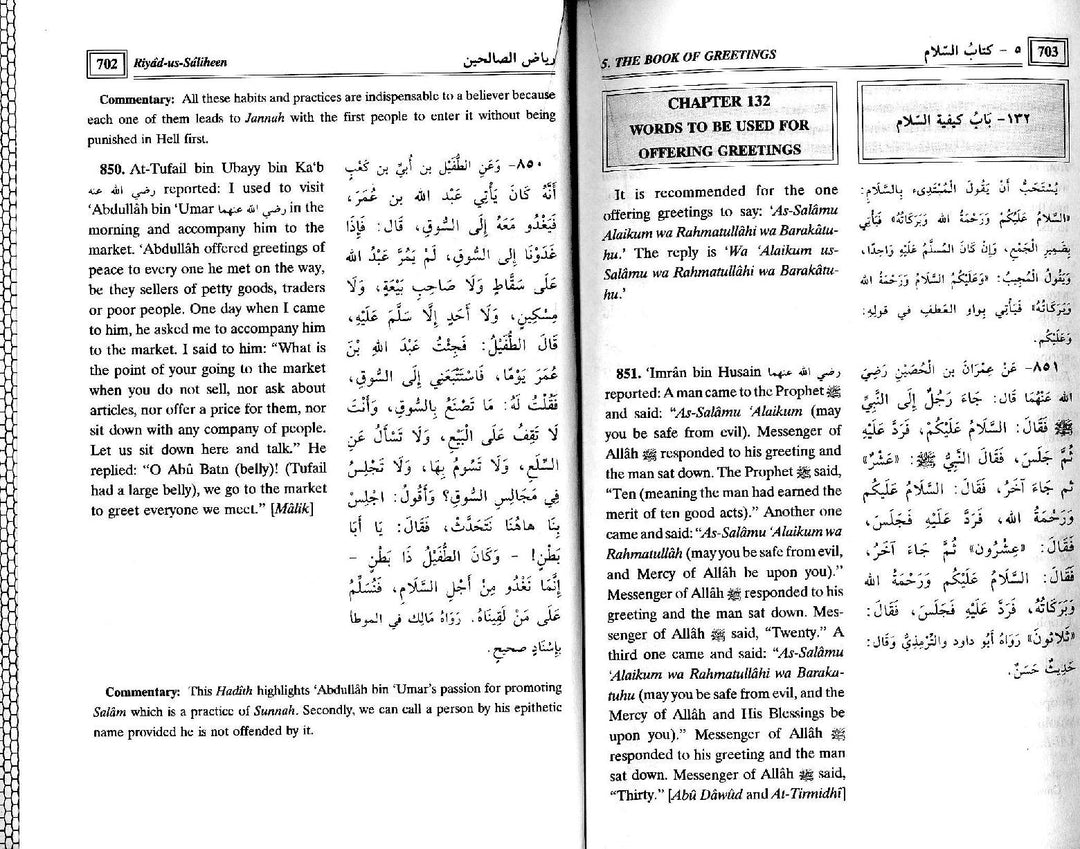 702 Riyâd-us-Sâliheen رياض الصالحين
Commentary: All these habits and practices are indispensable to a believer because
each one of them leads to Jannah with the first people to enter it without being
punished in Hell first.
850. At-Tufail bin Ubayy bin Ka‘b
رضي الله عنه reported: I used to visit
‘Abdullâh bin ‘Umar رضي الله عنهما in the
morning and accompany him to the
market. ‘Abdullâh offered greetings of
peace to every one he met on the way,
be they sellers of petty goods, traders
or poor people. One day when I came
to him, he asked me to accompany him
to the market. I said to him: “What is
the point of your going to the market
when you do not sell, nor ask about
articles, nor offer a price for them, nor
sit down with any company of people.
Let us sit down here and talk.” He
replied: “O Abû Batn (belly)! (Tufail
had a large belly), we go to the market
to greet everyone we meet.” [Mâlik]
٨٥٠- وَعَنِ الطُّفَيْلِ بن أُبيِّ بن كَعْبٍ
أَنَّهُ كَانَ يَأْتي عَبْدَ الله بن عُمَرَ،
فَيَغْدُو مَعَهُ إلَى السُّوقِ، قالَ: فَإذَا
غَدَوْنَا إلى السُّوقِ، لَمْ يَمُرَّ عَبْدُ الله
عَلَى سَقَّاطٍ وَلَا صَاحِبِ بَيْعَةٍ، وَلَا
مِسْكِينٍ، وَلَا أَحَدٍ إلَّا سَلَّمَ عَلَيْهِ،
قَالَ الطُّفَيْلُ: فَجِئْتُ عَبْدَ اللهِ بْنَ
عُمَرَ يَوْمًا، فَاسْتَتْبَعَنِي إلَى السُّوقِ،
فَقُلْتُ لَهُ: مَا تَصْنَعُ بِالسُّوقِ، وَأَنْتَ
لَا تَقِفُ عَلَى الْبَيْعِ، وَلَا تَسْأَلُ عَنِ
السِّلَعِ، وَلَا تَسُومُ بِهَا، وَلَا تَجْلِسُ
فِي مَجَالِسِ السُّوقِ؟ وَأَقُولُ: اجْلِسْ
بِنَا هاهُنَا نَتَحَدَّثْ، فَقَالَ: يَا أَبَا
بَطْنٍ! - وَكَانَ الطُّفَيْلُ ذَا بَطْنٍ -
إنَّمَا نَغْدُو مِنْ أَجْلِ السَّلَامِ، فَنُسَلِّمُ
عَلَى مَنْ لَقِيْنَاهُ. رَوَاهُ مَالِك في الموطأ
بِإسْنَادٍ صحيحٍ.
Commentary: This Hadîth highlights ‘Abdullâh bin ‘Umar’s passion for promoting
Salâm which is a practice of Sunnah. Secondly, we can call a person by his epithetic
name provided he is not offended by it.
5. THE BOOK OF GREETINGS ٥ - كتابُ السَّلام 703
CHAPTER 132
WORDS TO BE USED FOR
OFFERING GREETINGS
١٣٢- بَابُ كيفية السَّلَام
It is recommended for the one
offering greetings to say: ‘As-Salâmu
Alaikum wa Rahmatullâhi wa Barakâtu-
hu.’ The reply is ‘Wa ‘Alaikum us-
Salâmu wa Rahmatullâhi wa Barakâtu-
hu.’
يُسْتَحَبُّ أَنْ يَقُولَ الْمُبْتَدِىءُ بِالسَّلَامِ:
«السَّلَامُ عَلَيْكُمْ وَرَحْمَةُ الله وَبَرَكَاتُهُ» فَيَأْتي
بِضَمِيرِ الْجَمْعِ، وَإنْ كَانَ الْمُسَلَّمُ عَلَيْهِ وَاحِدًا،
وَيَقُولُ الْمُجِيبُ: «وَعَلَيْكُمُ السَّلَامُ وَرَحْمَةُ الله
وَبَرَكَاتُهُ» فَيَأْتي بِوَاوِ العَطفِ في قولِهِ:
وَعَلَيْكُم.
851. ‘Imrân bin Husain رضي الله عنهما
reported: A man came to the Prophet ﷺ
and said: “As-Salâmu ‘Alaikum (may
you be safe from evil). Messenger of
Allâh ﷺ responded to his greeting and
the man sat down. The Prophet ﷺ said,
“Ten (meaning the man had earned the
merit of ten good acts).” Another one
came and said: “As-Salâmu ‘Alaikum wa
Rahmatullâh (may you be safe from evil,
and Mercy of Allâh be upon you).”
Messenger of Allâh ﷺ responded to his
greeting and the man sat down. Mes-
senger of Allâh ﷺ said, “Twenty.” A
third one came and said: “As-Salâmu
‘Alaikum wa Rahmatullâhi wa Baraka-
tuhu (may you be safe from evil, and the
Mercy of Allâh and His Blessings be
upon you).” Messenger of Allâh ﷺ
responded to his greeting and the man
sat down. Messenger of Allâh ﷺ said,
“Thirty.” [Abû Dâwûd and At-Tirmidhî]
٨٥١- عَنْ عِمْرَانَ بن الْحُصَيْنِ رَضِيَ
الله عَنْهُمَا قال: جَاءَ رَجُلٌ إلَى النَّبيِّ
ﷺ فَقَالَ: السَّلَامُ عَلَيْكُمْ، فَرَدَّ عَلَيْهِ
ثُمَّ جَلَسَ، فَقَالَ النبيُّ ﷺ: «عَشْرٌ»
ثم جَاءَ آخَرُ، فَقَالَ: السَّلَامُ عَلَيكُم
وَرَحْمَةُ الله، فَرَدَّ عَلَيْهِ فَجَلَسَ،
فَقَالَ: «عِشْرُون» ثُمَّ جَاءَ آخَرُ،
فَقَالَ: السَّلَامُ عَلَيْكُم وَرَحْمَةُ الله
وَبَرَكَاتُهُ، فَرَدَّ عَلَيْهِ فَجَلَسَ، فَقَالَ:
«ثَلَاثُونَ» رَوَاهُ أبُو داود والتِّرْمِذِيُّ وَقَالَ:
حَدِيثٌ حَسَنٌ.